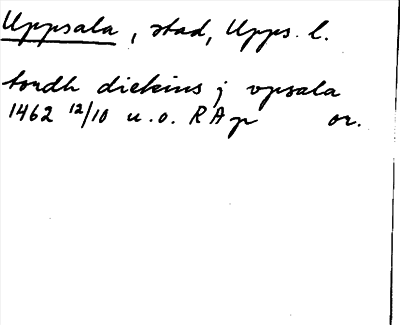 Uppsala, stad, Upps. l.
tordh diekius j vpsala
1462 12/10 u.o. RAp or.